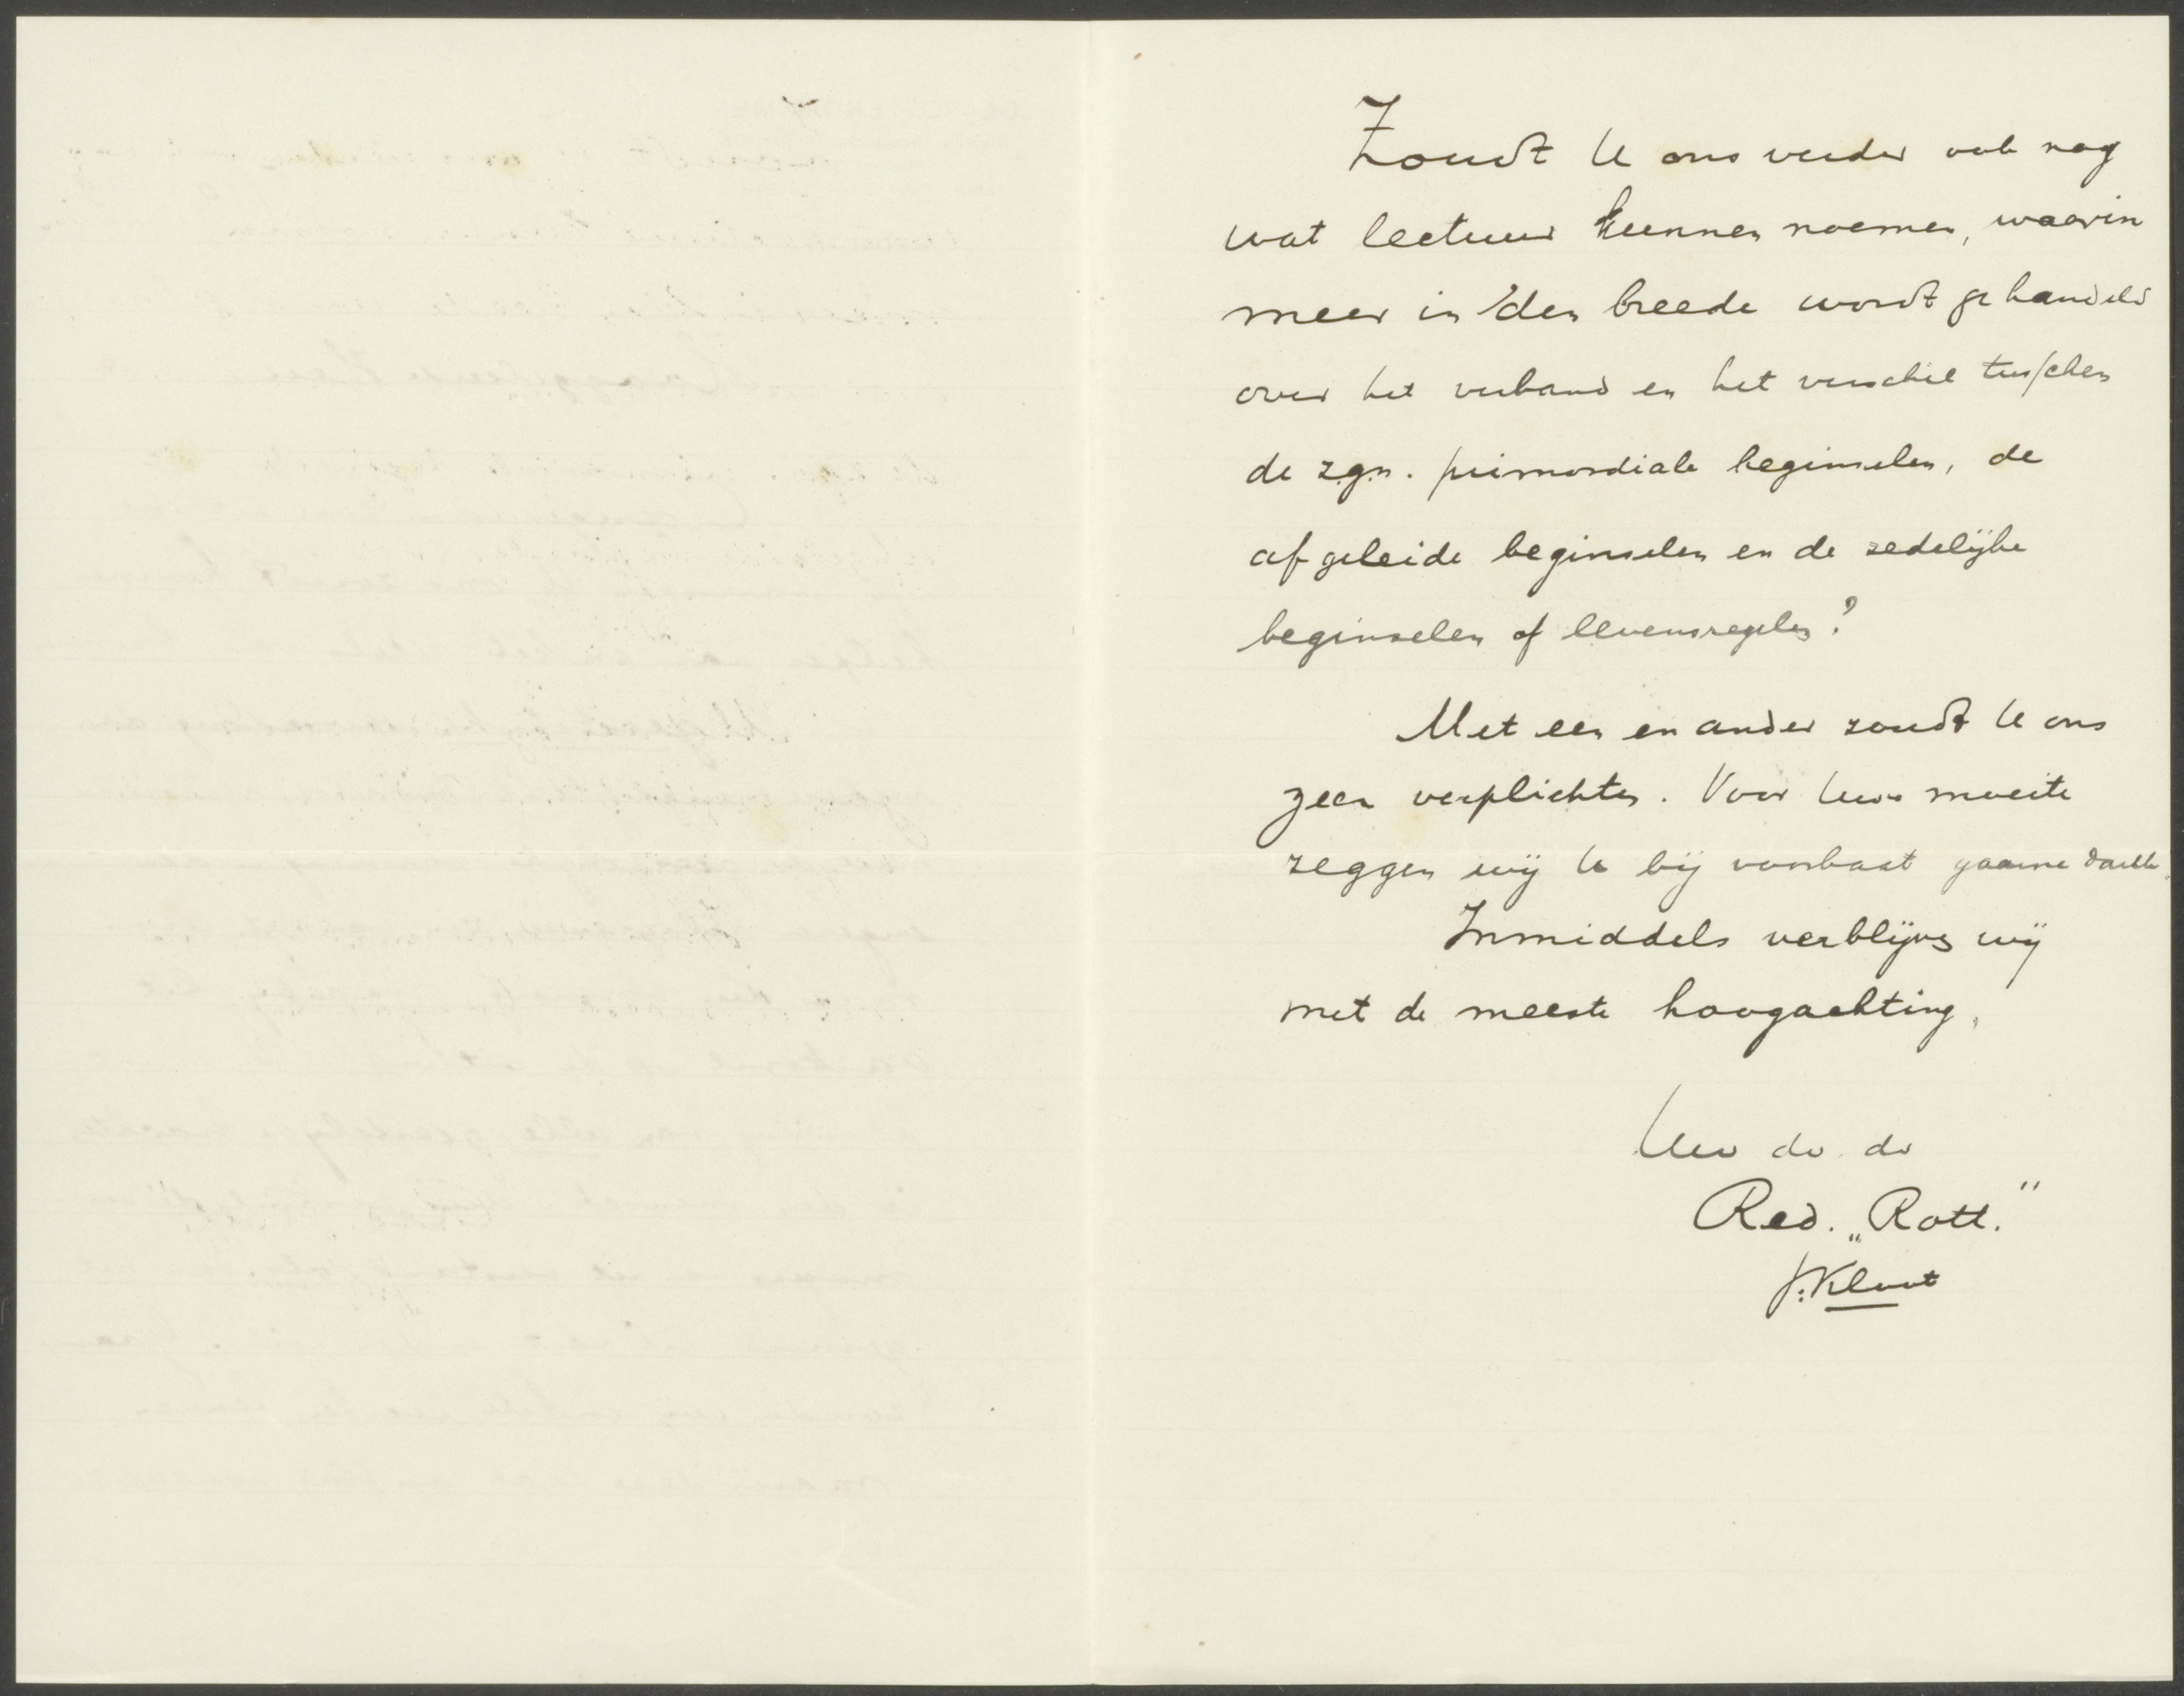 Zoudt U ons verder ook nog
wat lectuur kunnen noemen, waarin
meer in 'den breede wordt gehandeld
over het verband en het verschil tusschen
de z.g.n. primordiale beginselen, de
afgeleide beginselen en de zedelijke
beginselen of levensregelen?
Met een en ander zoudt U ons
zeer verplichten. Voor Uwe moeite
zeggen wij U bij voorbaat gaarne dank.
Inmiddels verblijven wij
met de meeste hoogachting,
Uw dv. dr
Red. „Rott."
J. Kluut